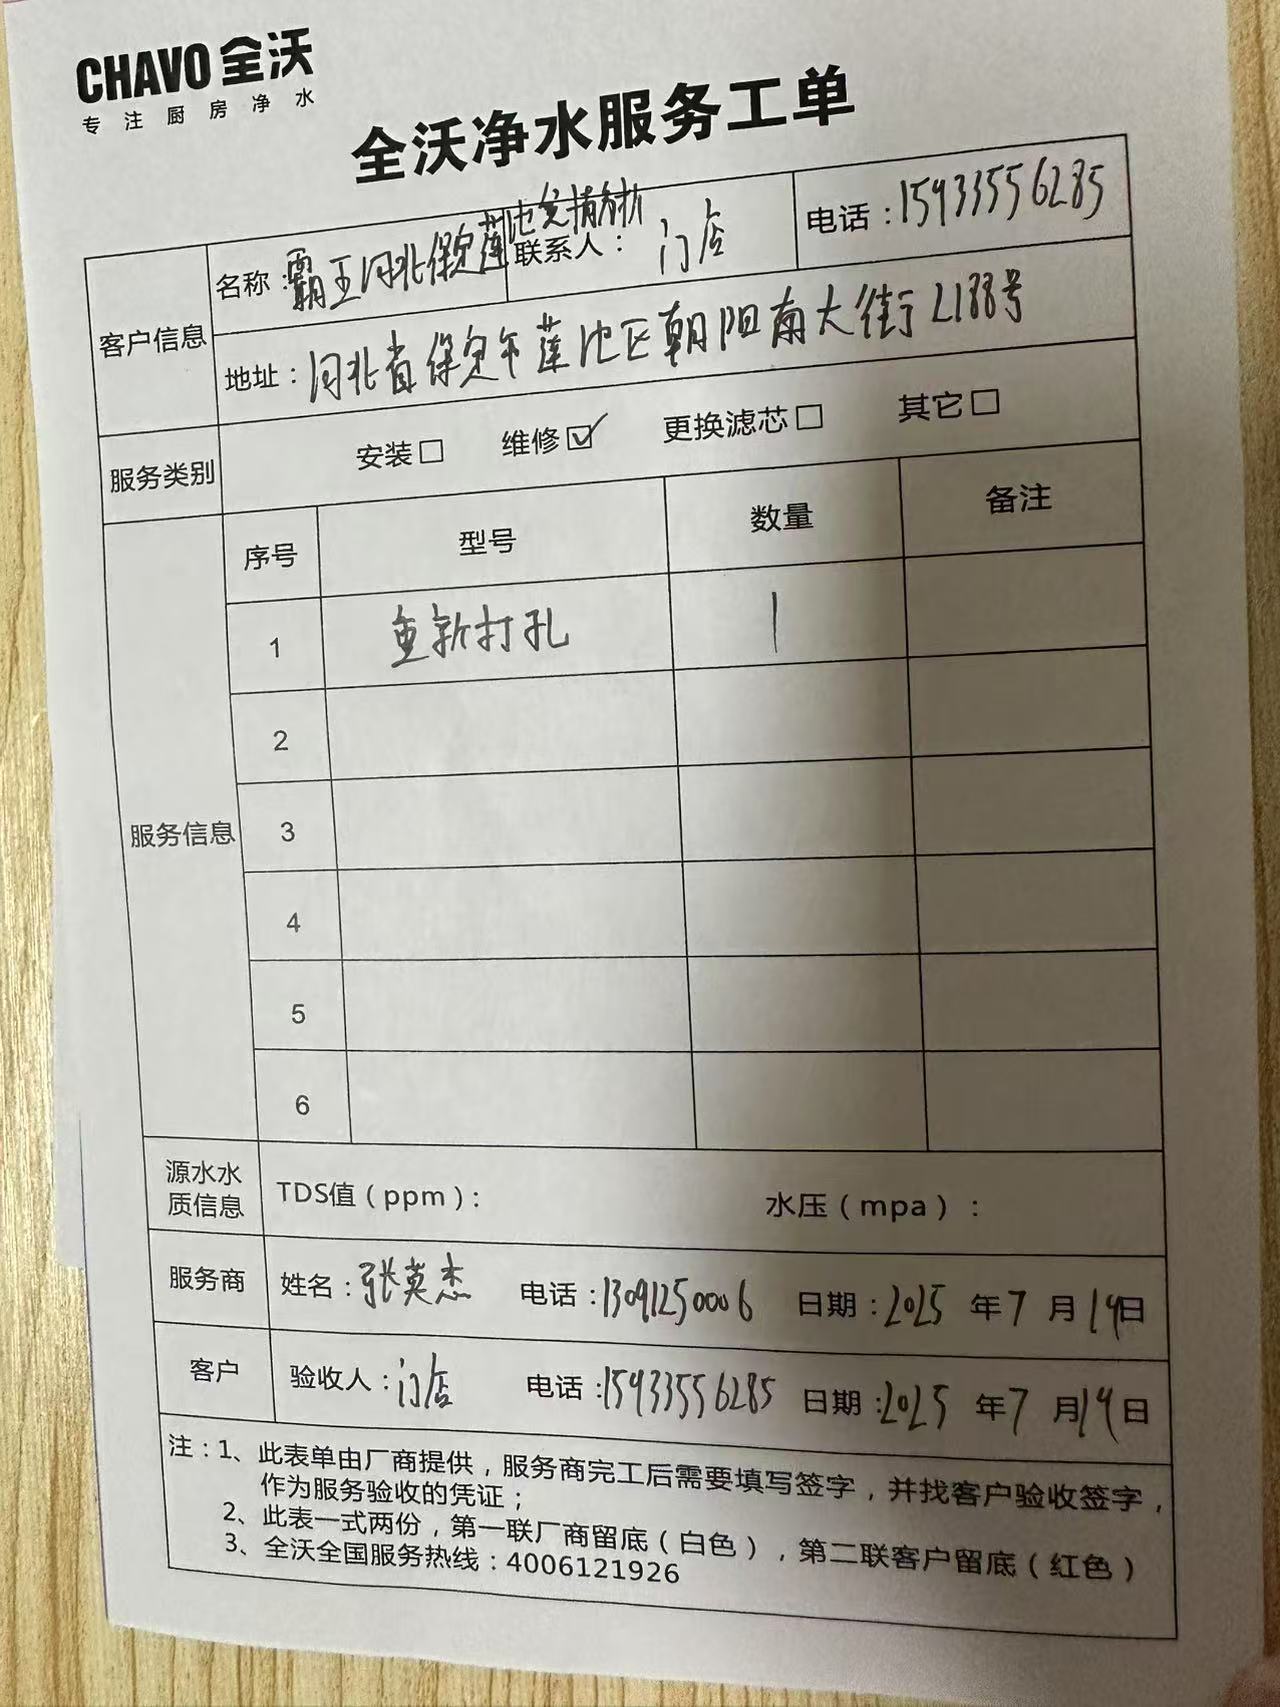 CHAVO 全沃
专注厨房净水
全沃净水服务工单
客户信息
名称：霸王河北保定莲池
联系人：门店
电话：15933556285
地址：河北省保定市莲池区朝阳南大街2188号
服务类别
安装□ 维修☑ 更换滤芯□ 其它□
服务信息
序号 型号 数量 备注
1 重新打孔 1
2
3
4
5
6
源水水质信息
TDS值（ppm）： 水压（mpa）：
服务商 姓名：张英杰 电话：13091250006 日期：2025年7月14日
客户 验收人：门店 电话：15933556285 日期：2025年7月14日
注：1、此表单由厂商提供，服务商完工后需要填写签字，并找客户验收签字，
作为服务验收的凭证；
2、此表一式两份，第一联厂商留底（白色），第二联客户留底（红色）
3、全沃全国服务热线：4006121926